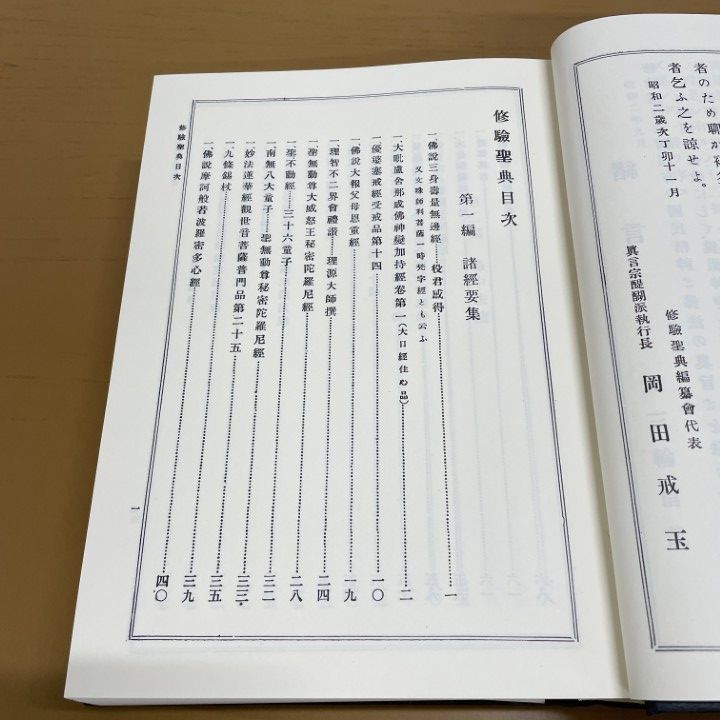 者のため聊か
者乞ふ之を諒せよ。
昭和二歳次丁卯十一月
修驗聖典編纂會代表
眞言宗醍醐派執行長 岡田戒玉
修驗聖典目次
第一編 諸經要集
一佛說三身壽量無邊經……役君感得……一
又文珠師利菩薩一時梵字經とも云ふ
一大毗盧舍那成佛神變加持經卷第一(大日經住心品)……二
一優婆塞戒經受戒品第十四……一〇
一佛說大報父母恩重經……一九
一理智不二界會禮讃……理源大師撰……二四
一聖無動尊大威怒王秘密陀羅尼經……二八
一聖不動經……三十六童子……三二
一南無八大童子……聖無動尊秘密陀羅尼經……三三
一妙法蓮華經觀世音菩薩普門品第二十五……三五
一九條錫杖……三九
一佛說摩訶般若波羅密多心經……四〇
修驗聖典目次
一